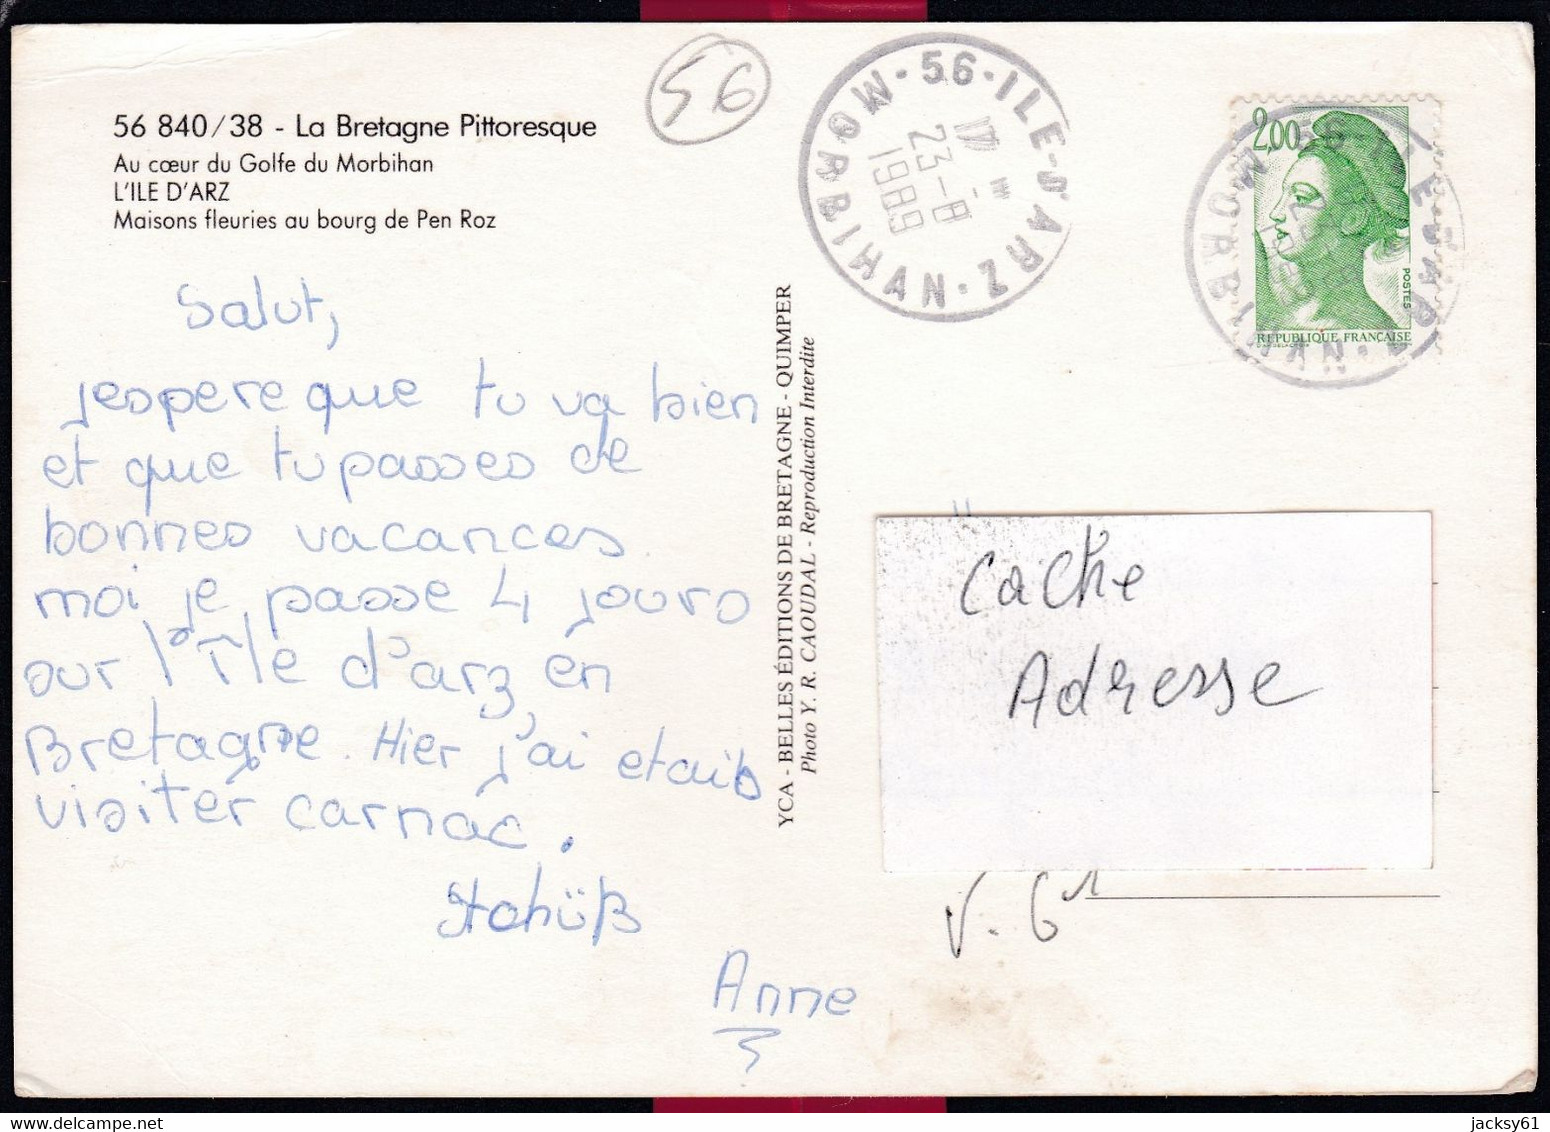 56 840/38 - La Bretagne Pittoresque
Au cœur du Golfe du Morbihan
L'ILE D'ARZ
Maisons fleuries au bourg de Pen Roz
56
56-ILE-D'ARZ
MORBIHAN
17 H
23-8
1989
2,00
POSTES
REPUBLIQUE FRANÇAISE
56-ILE-D'ARZ
MORBIHAN
Salut,
jespere que tu va bien
et que tu passes de
bonnes vacances
moi je passe 4 jours
sur l'Île d'arz en
Bretagne. Hier j'ai etais
visiter carnac.
Stchüß
Anne
YCA - BELLES ÉDITIONS DE BRETAGNE - QUIMPER
Photo Y. R. CAOUDAL - Reproduction Interdite
Cache
Adresse
V. G1
jacksy61